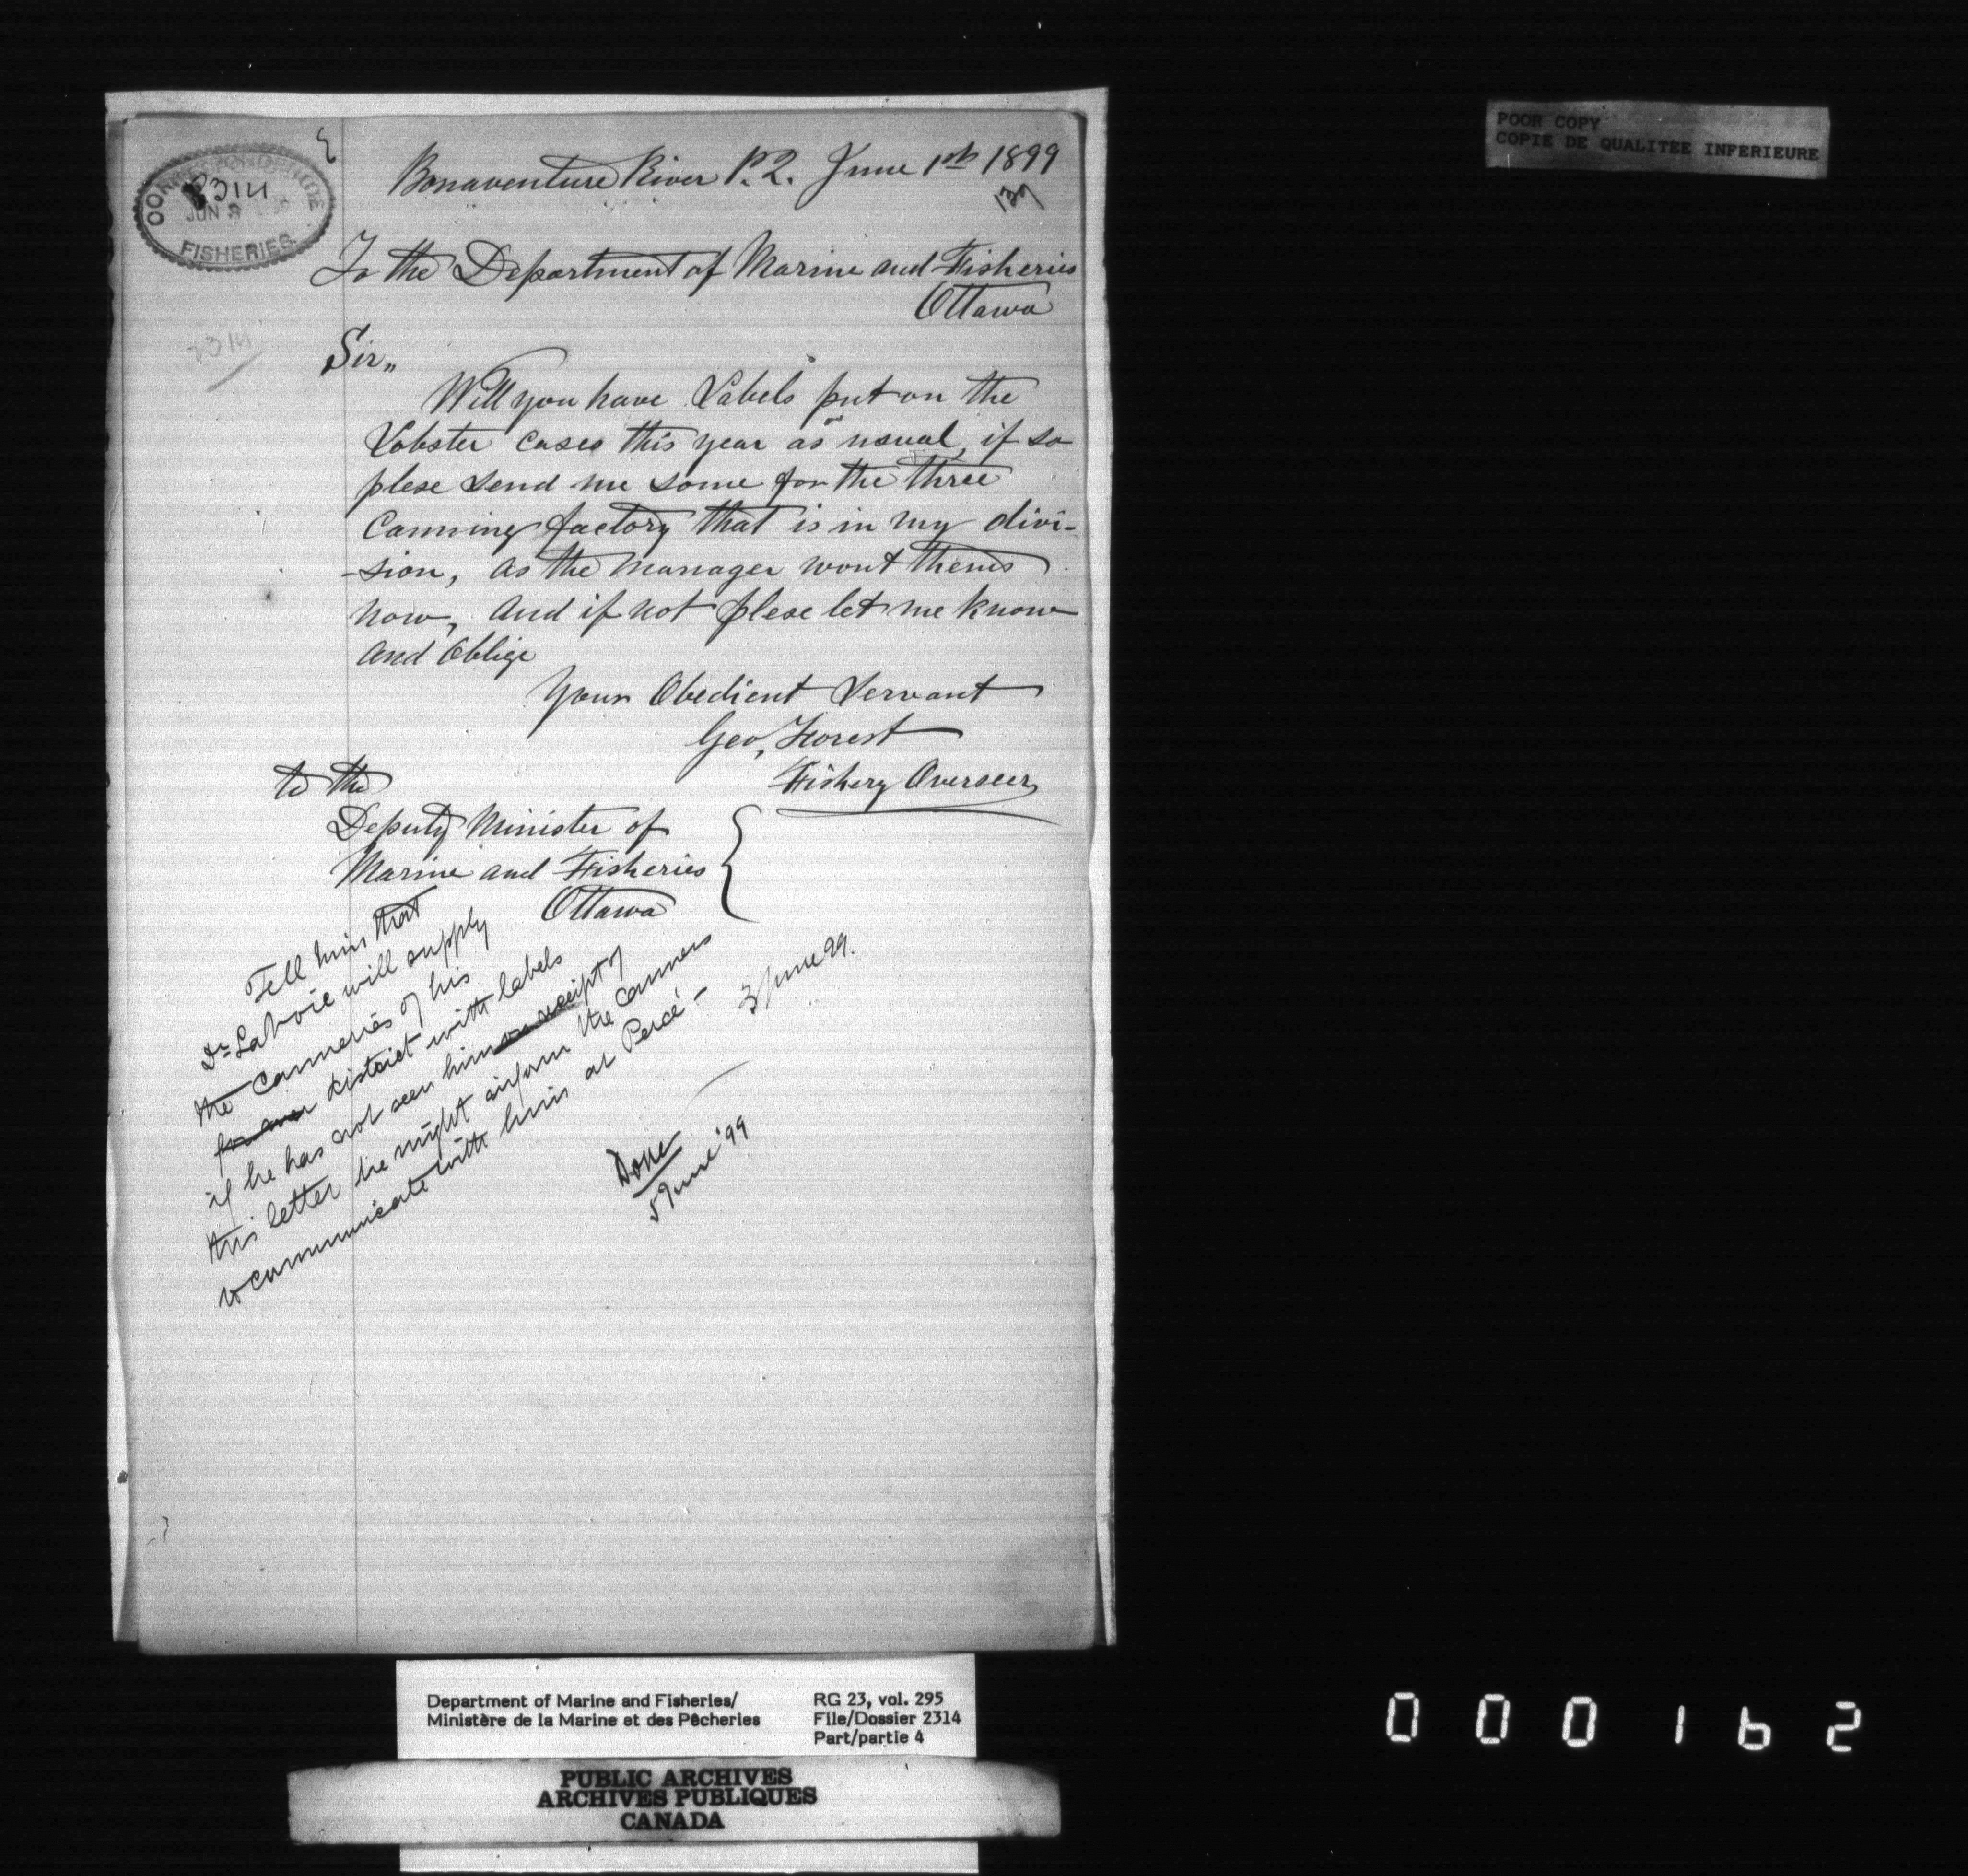 POOR COPY
COPIE DE QUALITEE INFERIEURE
CORRESPONDENCE
2314
JUN 3 1899
FISHERIES.
Bonaventure River P.Q. June 1st 1899
139
To the Department of Marine and Fisheries
Ottawa
2314
Sir,,
Will you have Labels put on the
Lobster cases this year as usual, if so
plese send me some for the three
Canning factory that is in my divi-
-sion, as the manager wont thems
now, and if not plese let me know
and Oblige
Your Obedient Servant
Geo, Forest
Fishery Overseer
to the
Deputy Minister of
Marine and Fisheries
Ottawa
Tell him that
Dr. LaVoie will supply
the canneries of his
district with labels
if he has not seen him on receipt of
this letter he might inform the canners
to communicate with him at Percé -
3 June 99.
Done
5 June '99
Department of Marine and Fisheries/
Ministère de la Marine et des Pêcheries
RG 23, vol. 295
File/Dossier 2314
Part/partie 4
PUBLIC ARCHIVES
ARCHIVES PUBLIQUES
CANADA
000162